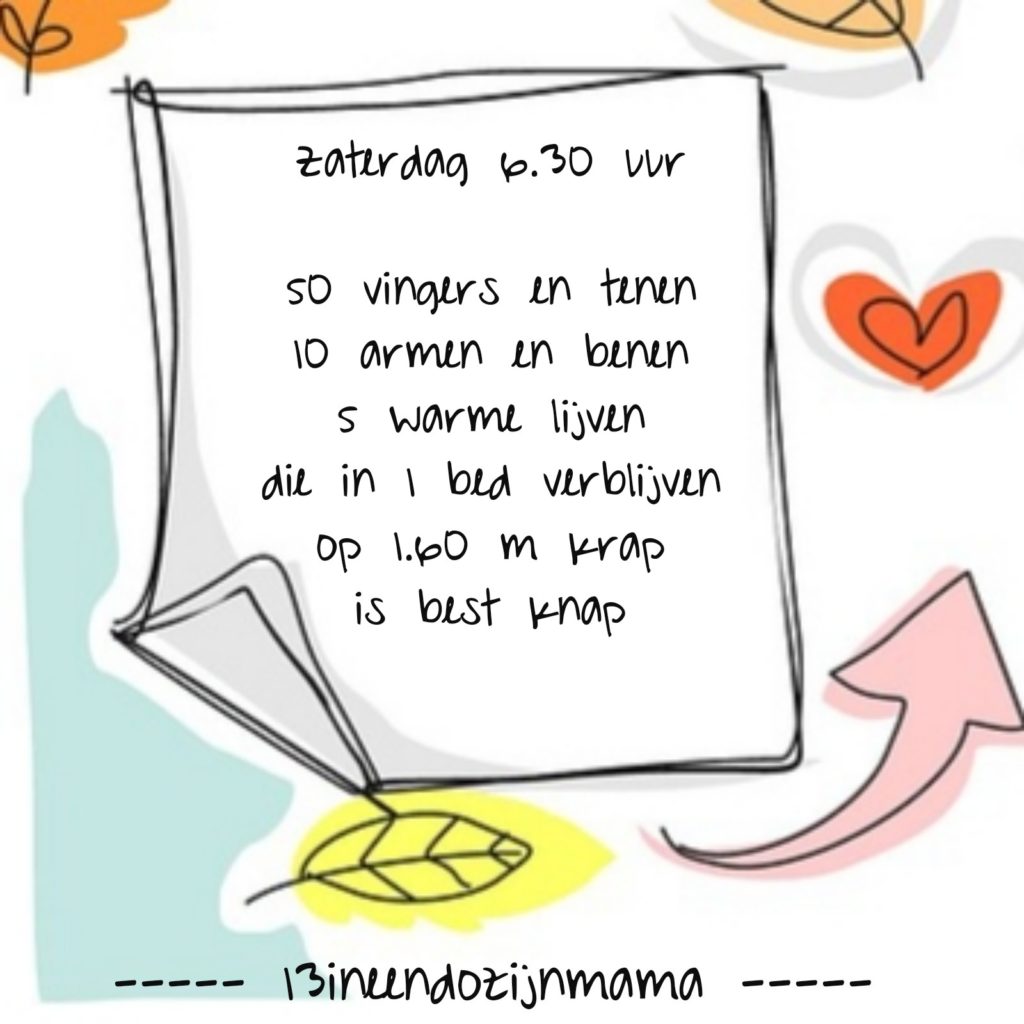 zaterdag 6.30 uur
50 vingers en tenen
10 armen en benen
5 warme lijven
die in 1 bed verblijven
op 1.60 m krap
is best knap
----- 13ineendozijnmama -----